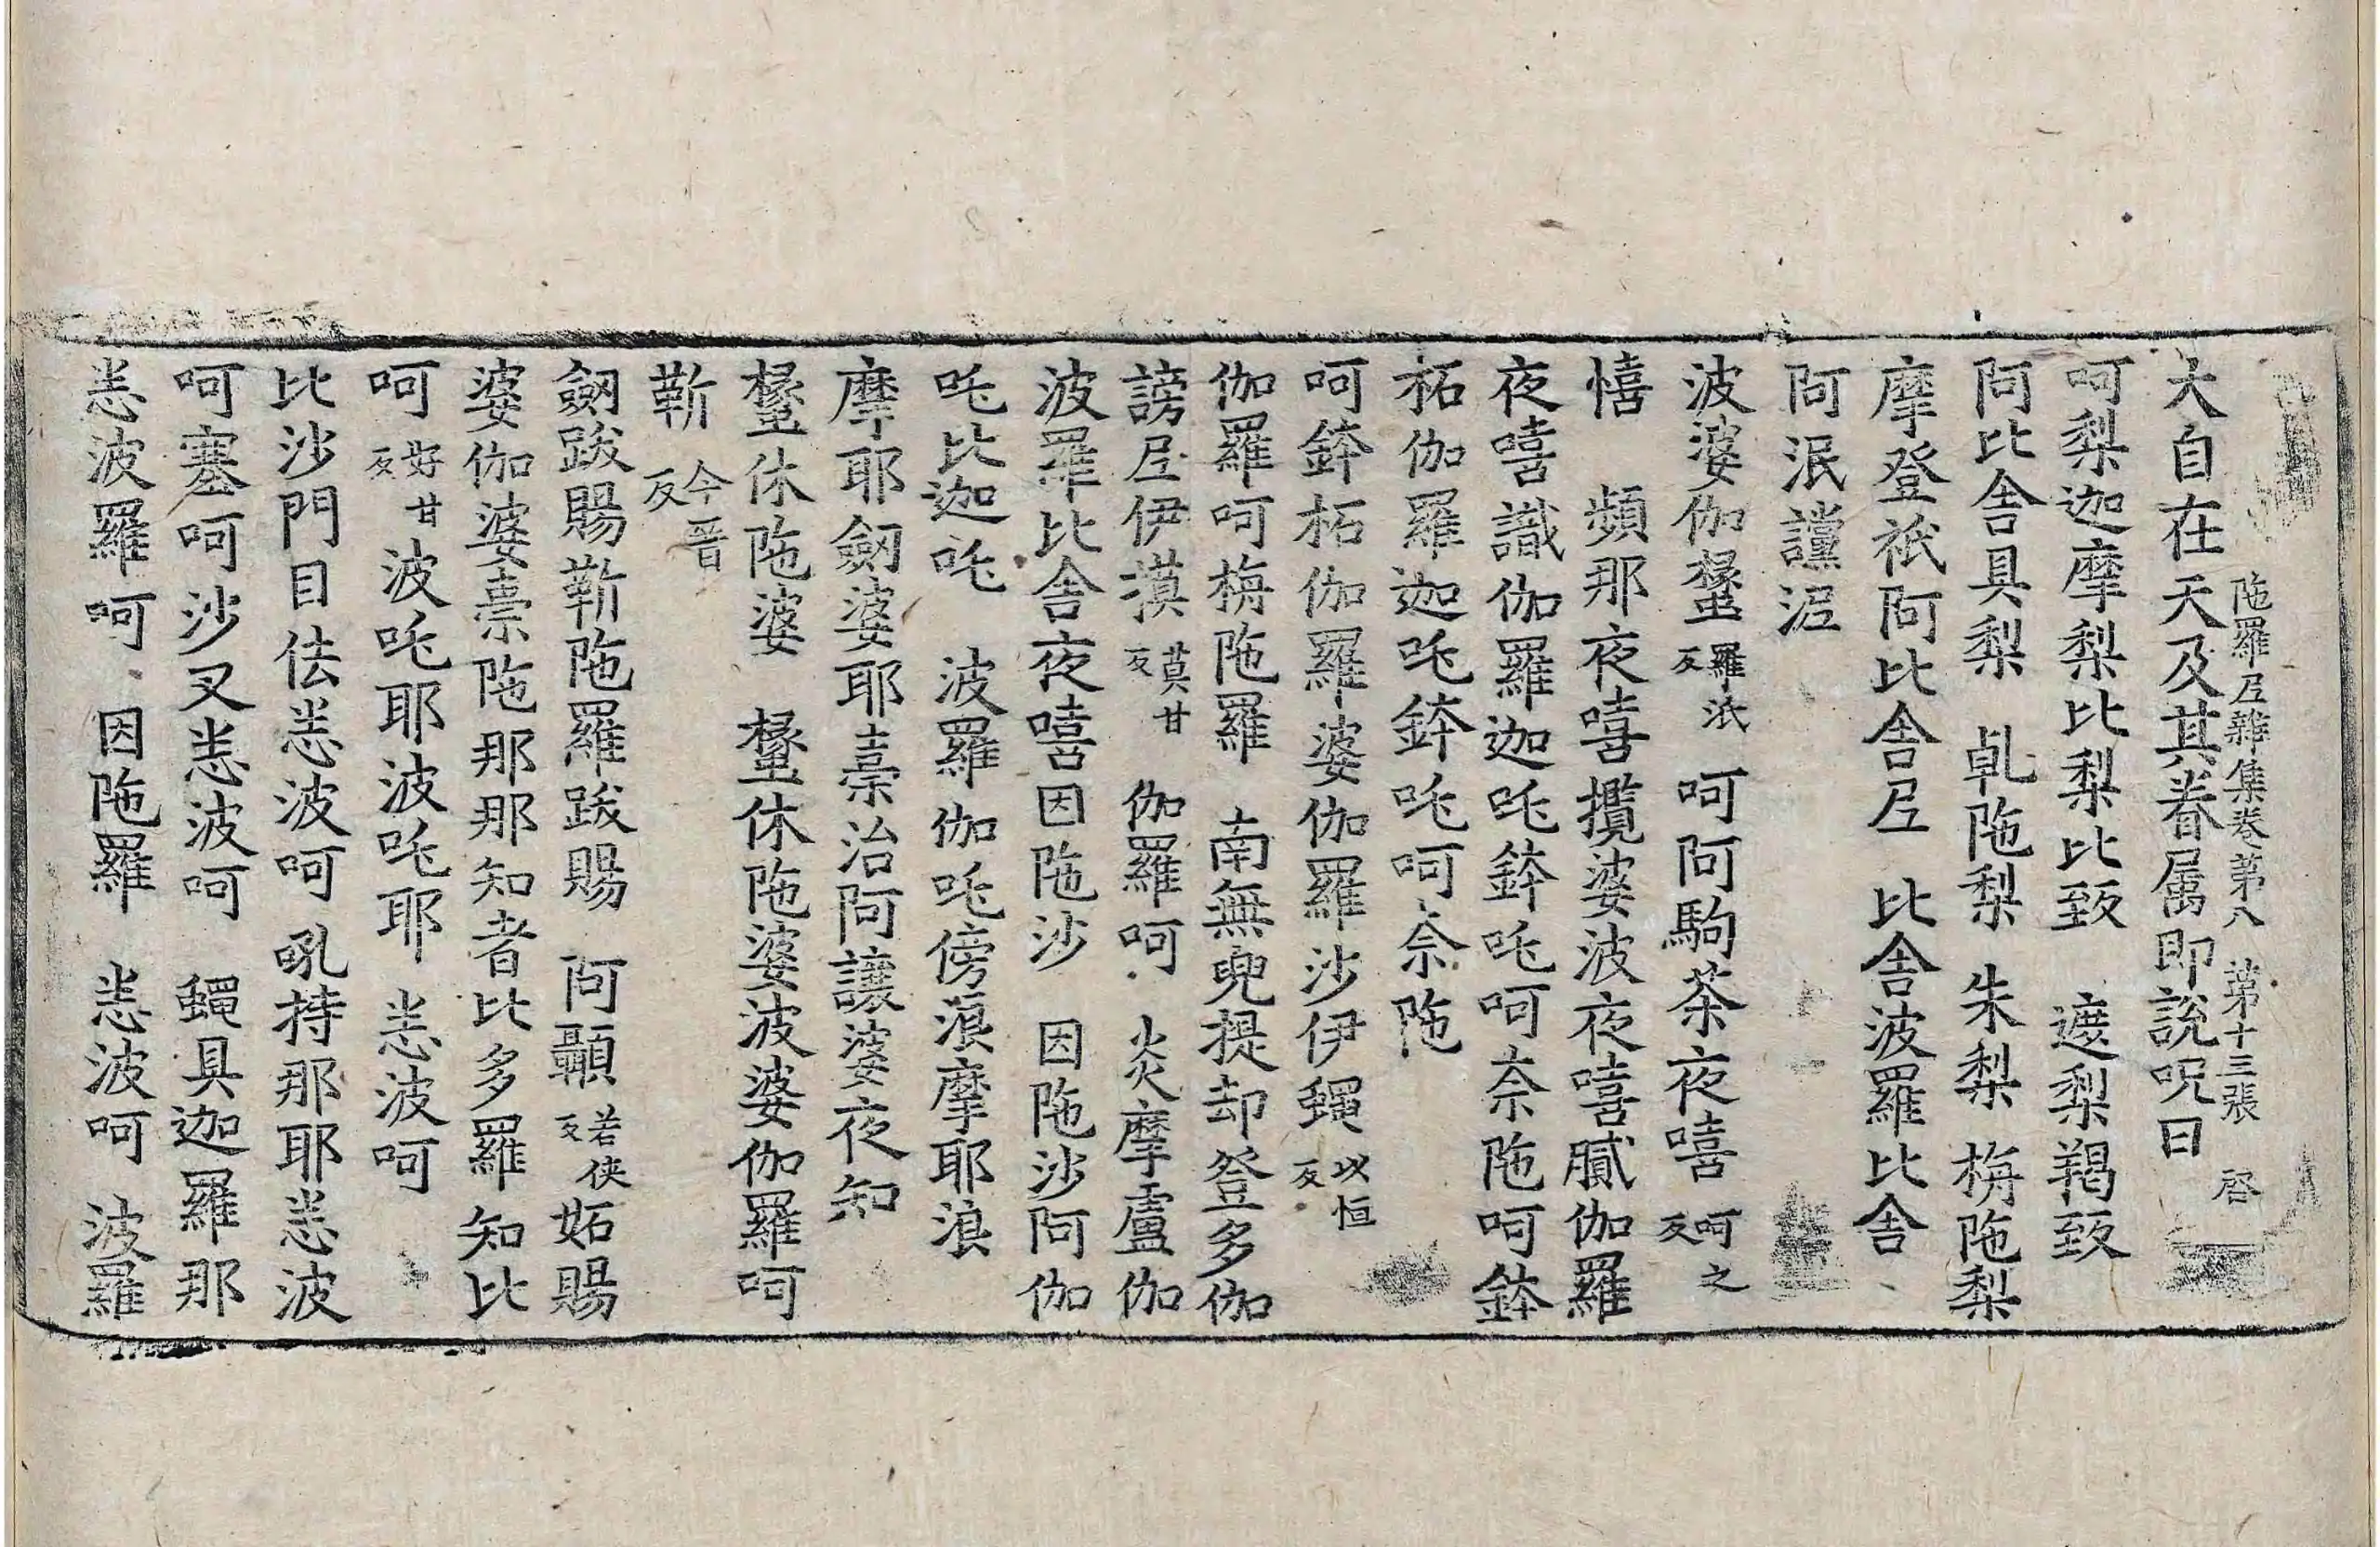 陁羅𡰱雜集卷第八 第十三張 啓
大自在天及其眷属即說呪曰
呵梨迦摩梨比梨比致 遮梨羯致
阿比舎具梨 乹陁梨 朱梨 栴陁梨
摩登祇阿比舎𡰱 比舎波羅比舎
阿泯讜泥
波婆伽蠡羅泜反 呵阿駒荼夜嘻呵之反
憘 頻那夜嘻攬婆波夜嘻膩伽羅
夜嘻識伽羅迦吒鉢吒呵奈陁呵鉢
柘伽羅迦吒鉢吒呵奈陁
呵鉢柘伽羅婆伽羅沙伊蠅以恒反
伽羅呵栴陁羅 南無兜提却登多伽
謗𡰱伊漠莫甘反 伽羅呵 炎摩盧伽
波羅比舎夜嘻因陁沙 因陁沙阿伽
吒比迦吒 波羅伽吒傍浪摩耶浪
摩耶劔婆耶柰治阿讓婆夜知
蠡休陁婆 蠡休陁婆波婆伽羅呵
靳今晋反
劔跋賜靳陁羅跋賜 阿顳若俠反妬賜
婆伽婆柰陁那那知者比多羅知比
呵好甘反波吒耶波吒耶 恙波呵
比沙門目佉恙波呵吼持那耶恙波
呵塞呵沙叉恙波呵 蠅具迦羅那
恙波羅呵 因陁羅 恙波呵 波羅